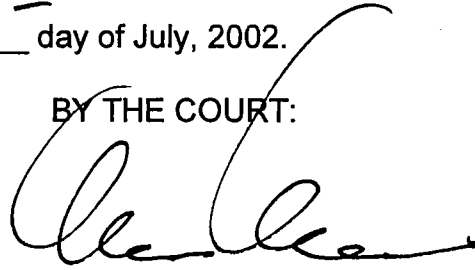 day of July, 2002.
BY THE COURT: